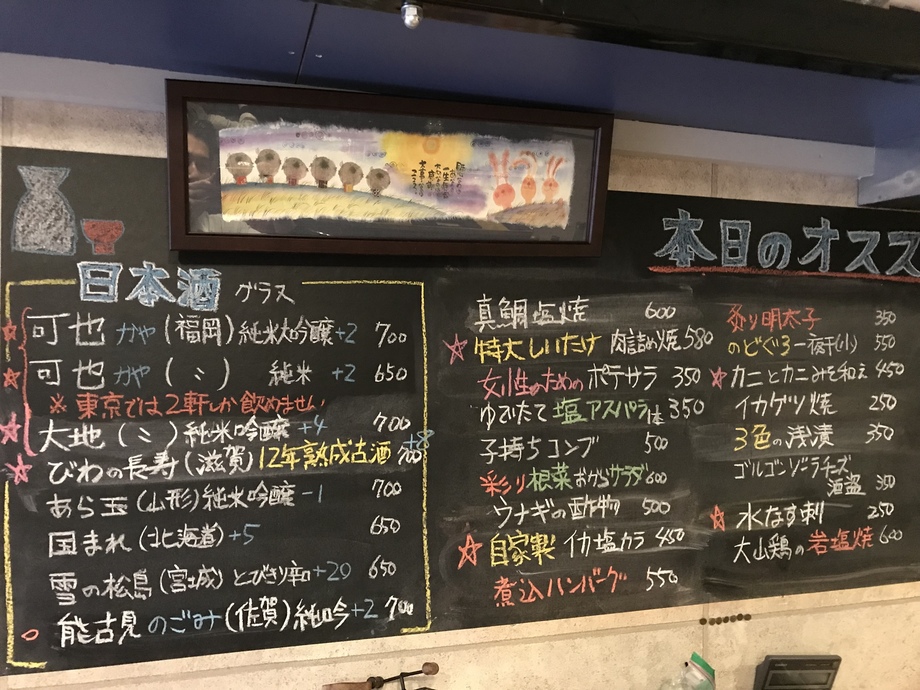 日本酒 グラス
可也 かや (福岡) 純米大吟醸 +2 700
可也 かや (〃) 純米 +2 650
※ 東京では2軒しか飲めません
大地 (〃) 純米吟醸 +4 700
びわの長寿 (滋賀) 12年熟成古酒 +8 700
あら玉 (山形) 純米吟醸 -1 700
国まれ (北海道) +5 650
雪の松島 (宮城) とびきり辛口 +20 650
能古見 のごみ (佐賀) 純吟 +2 700
本日のオスス
真鯛塩焼 600
特大しいたけ 肉詰め焼 580
女性のための ポテサラ 350
ゆでたて 塩アスパラ 1本 350
子持ちコンブ 500
彩り根菜 おからサラダ 600
ウナギの酢の物 500
自家製 イカ塩カラ 450
煮込ハンバーグ 550
炙り明太子 350
のどぐろ一夜干(小) 550
カニとカニみそ和え 450
イカゲソ焼 250
3色の浅漬 350
ゴルゴンゾーラチーズ
酒盗 350
水なす刺 250
大山鶏の岩塩焼 600